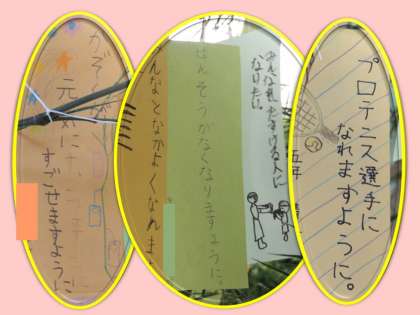 プロテニス選手に
なれますように。
みんなをたすける人に
なりたい
五年
せんそうがなくなりますように。
みんなとなかよくなれま
かぞくが
元気に
すごせますように